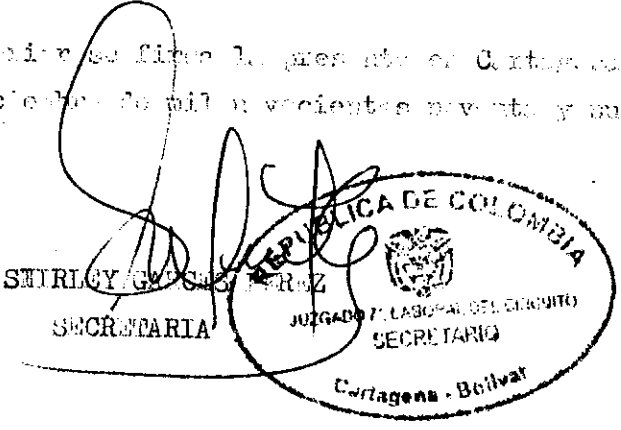 se firma la presente en
de mil novecientos noventa y
SHIRLEY GARCES PEREZ
SECRETARIA
REPUBLICA DE COLOMBIA
JUZGADO 7. LABORAL DEL CIRCUITO
SECRETARIO
Cartagena - Bolivar